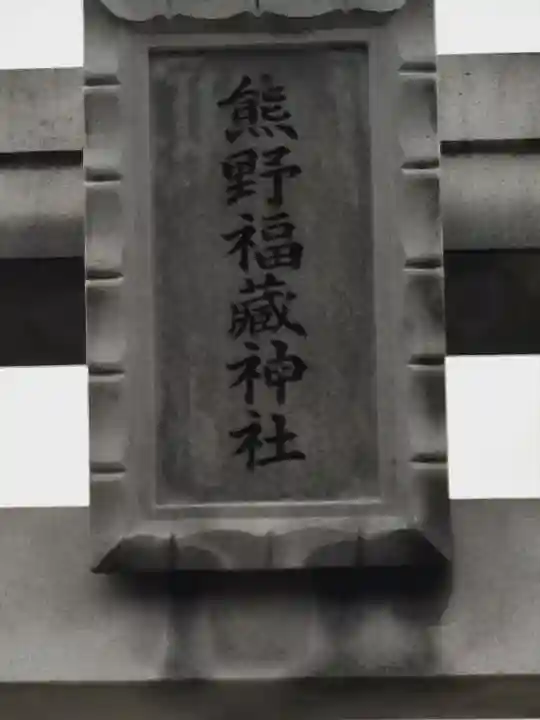 熊野福藏神社